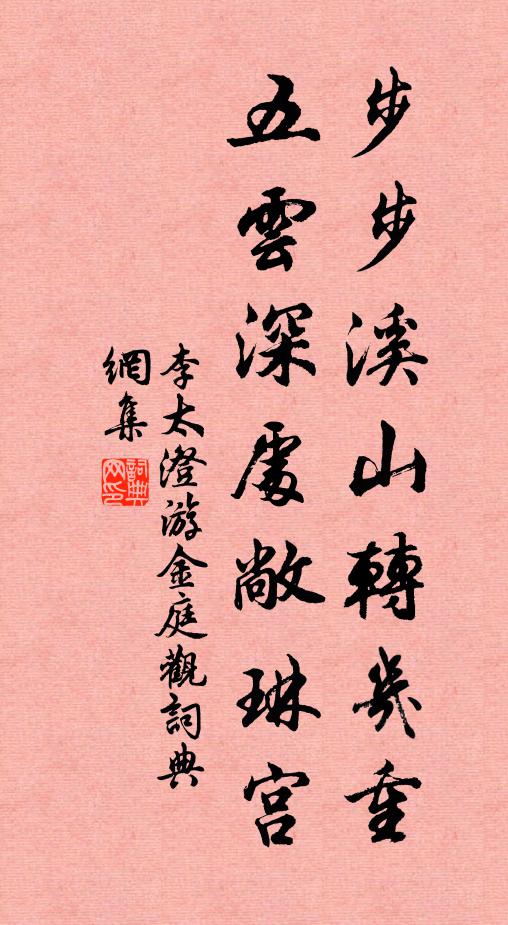 步步溪山轉幾重
五雲深處敞琳宮
李太澄游金庭觀詞典
網集
詞典
网印